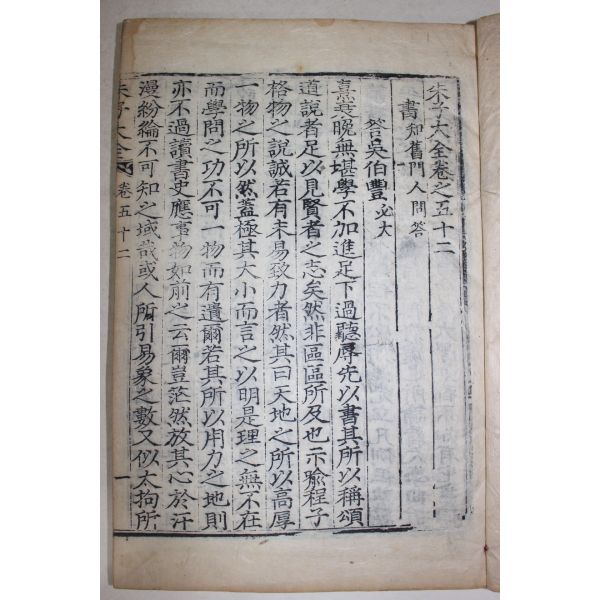 朱子大全卷之五十二
書 知舊門人問答
答吳伯豐 必大
熹衰晚無堪學不加進足下過聽辱先以書其所以稱頌
道說者足以見賢者之志矣然非區區所及也示喩程子
格物之說誠若有未易致力者然其曰天地之所以高厚
一物之所以然蓋極其大小而言之以明是理之無不在
而學問之功不可一物而有遺爾若其所以用力之地則
亦不過讀書史應事物如前之云爾豈茫然放其心於汗
漫紛綸不可知之域哉或人所引易象之數又似太拘所
朱子大全 卷五十二 一